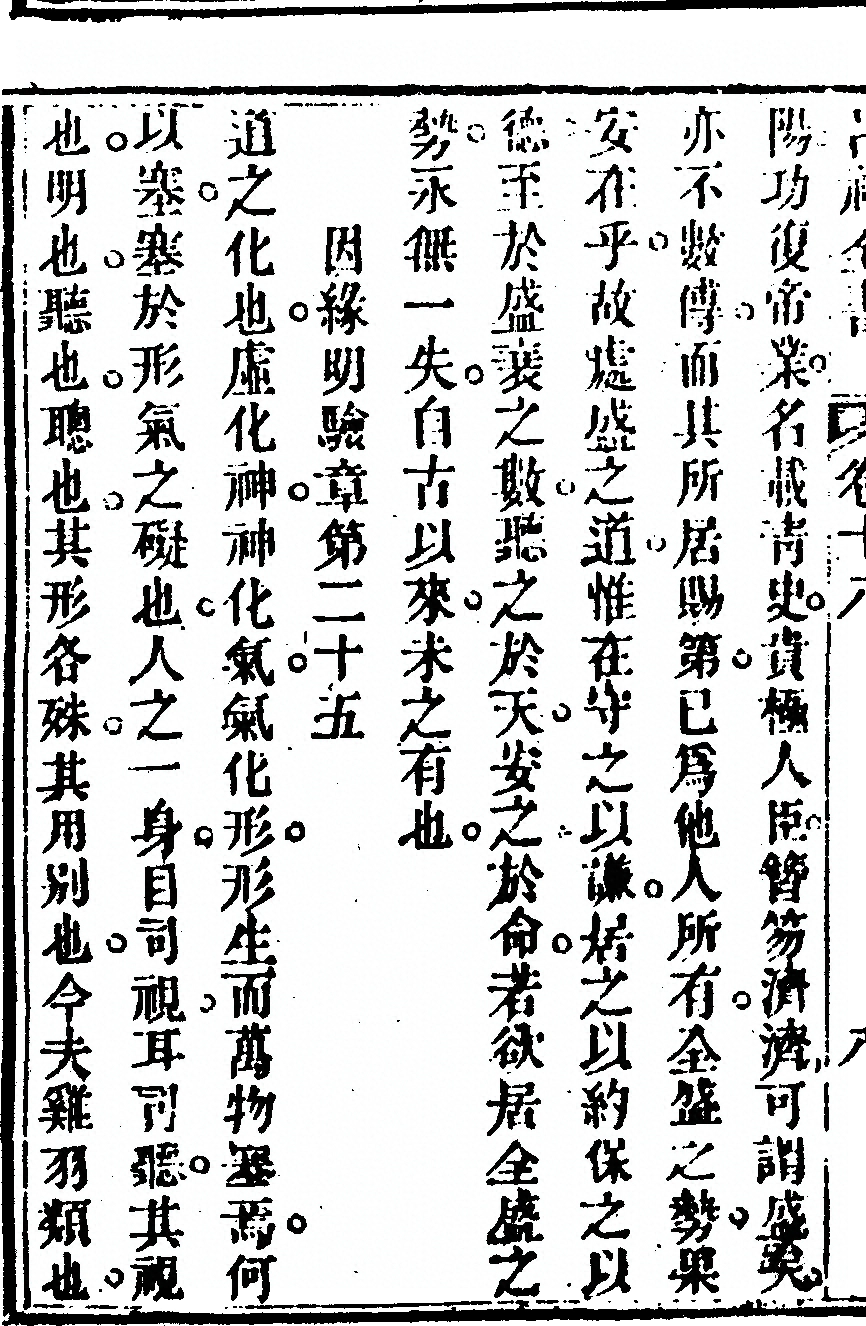 陽功復帝業名載靑史貴極人臣簪笏濟濟可謂盛矣
亦不數傳而其所居賜第已爲他人所有全盛之勢果
安在乎故處盛之道惟在守之以謙居之以約保之以
德至於盛衰之數聽之於天安之於命若欲居全盛之
勢永無一失自古以來未之有也
因緣明驗章第二十五
道之化也虛化神神化氣氣化形形生而萬物塞焉何
以塞塞於形氣之礙也人之一身目司視耳司聽其視
也明也聽也聰也其形各殊其用別也今夫雞羽類也